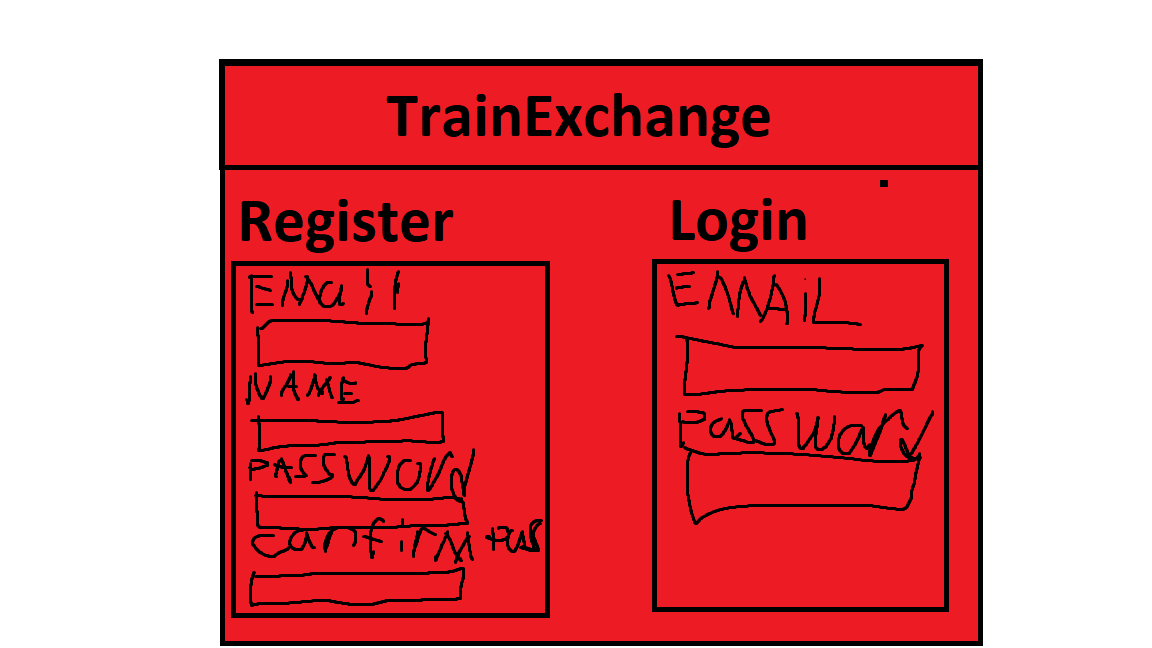 TrainExchange
Register
Login
EMail
NAME
PASSWORd
confirm pas
EMAiL
Password